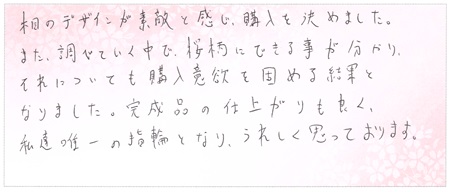 相のデザインが素敵と感じ、購入を決めました。
また、調べていく中で、桜柄にできる事が分かり、
それについても購入意欲を固める結果と
なりました。完成品の仕上がりも良く、
私達唯一の指輪となり、うれしく思っております。